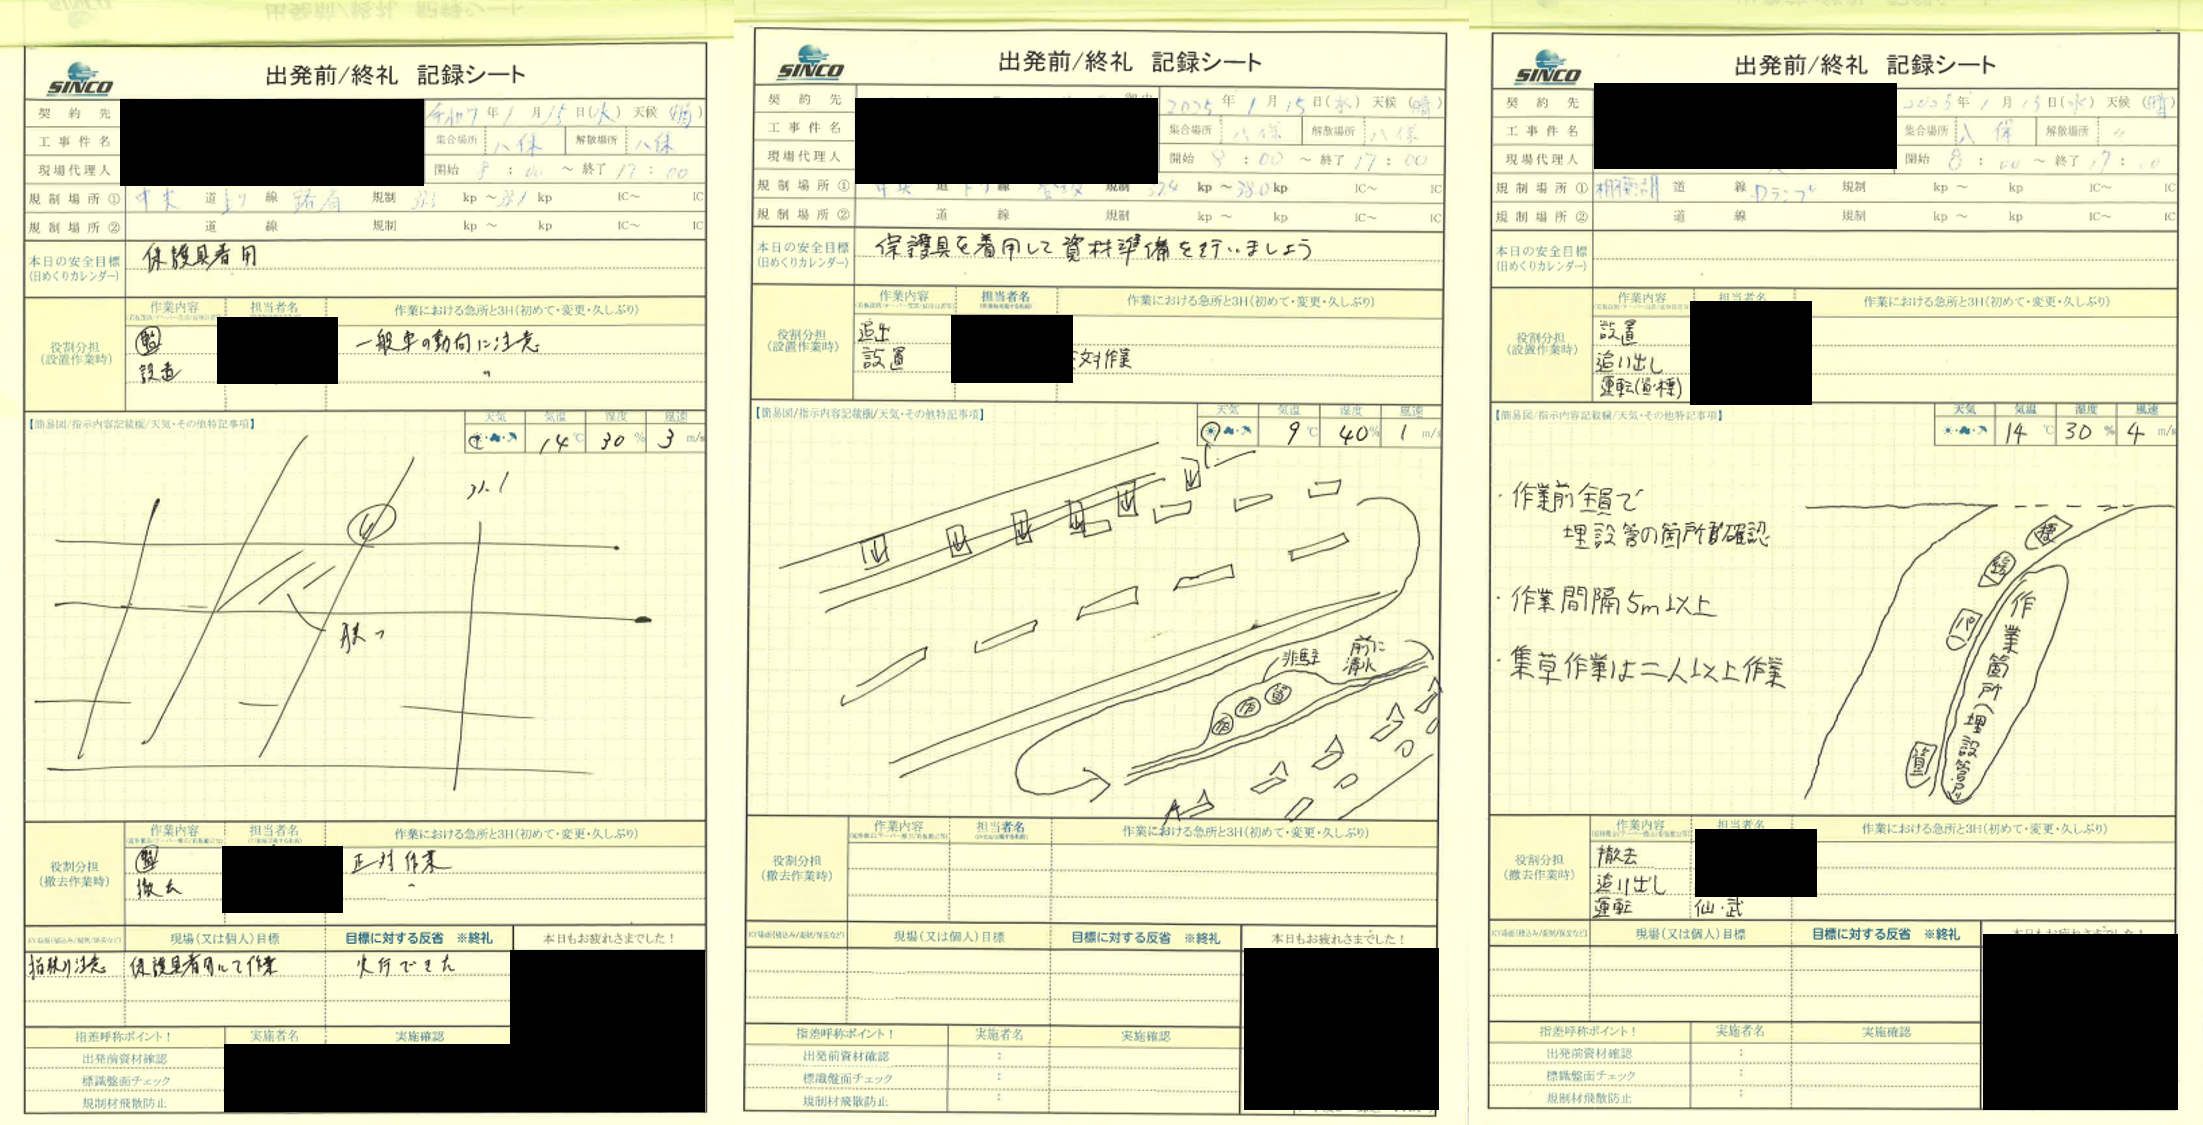 SINCO
出発前/終礼 記録シート
契約先
令和7年1月15日(水) 天候(晴)
工事件名
集合場所 八保 解散場所 八保
現場代理人
開始 8:00 ～ 終了 17:00
規制場所① 中央 道 上り 線 路肩 規制 kp ～ kp IC～ IC
規制場所② 道 線 規制 kp ～ kp IC～ IC
本日の安全目標
(日めくりカレンダー)
保護具着用
作業内容 担当者名 作業における急所と3H(初めて・変更・久しぶり)
役割分担
(設置作業時)
一般車の動向に注意
設置 〃
【簡易図/指示内容記載欄/天気・その他特記事項】
天気 気温 湿度 風速
14℃ 30% 3m/s
31.1
作業内容 担当者名 作業における急所と3H(初めて・変更・久しぶり)
役割分担
(撤去作業時)
正対作業
撤去 〃
現場(又は個人)目標 目標に対する反省 ※終礼 本日もお疲れさまでした!
指挟み注意 保護具着用して作業 実行できた
指差呼称ポイント! 実施者名 実施確認
出発前資材確認
標識盤面チェック
規制材飛散防止
SINCO
出発前/終礼 記録シート
契約先
2025年1月15日(水) 天候(晴)
工事件名
集合場所 八保 解散場所 八保
現場代理人
開始 8:00 ～ 終了 17:00
規制場所① 中央 道 下り 線 規制 37.4 kp ～ 38.0 kp IC～ IC
規制場所② 道 線 規制 kp ～ kp IC～ IC
本日の安全目標
(日めくりカレンダー)
保護具を着用して資材準備を行いましょう
作業内容 担当者名 作業における急所と3H(初めて・変更・久しぶり)
役割分担
(設置作業時)
追出
設置 対作業
【簡易図/指示内容記載欄/天気・その他特記事項】
天気 気温 湿度 風速
9℃ 40% 1m/s
非駐
前に
清水
作 作 資
作業内容 担当者名 作業における急所と3H(初めて・変更・久しぶり)
役割分担
(撤去作業時)
現場(又は個人)目標 目標に対する反省 ※終礼 本日もお疲れさまでした!
指差呼称ポイント! 実施者名 実施確認
出発前資材確認 :
標識盤面チェック :
規制材飛散防止 :
SINCO
出発前/終礼 記録シート
契約先
2025年1月15日(水) 天候(晴)
工事件名
集合場所 八保 解散場所 〃
現場代理人
開始 8:00 ～ 終了 17:00
規制場所① 相模湖 道 線 Dランプ 規制 kp ～ kp IC～ IC
規制場所② 道 線 規制 kp ～ kp IC～ IC
本日の安全目標
(日めくりカレンダー)
作業内容 担当者名 作業における急所と3H(初めて・変更・久しぶり)
役割分担
(設置作業時)
設置
追い出し
運転(資・標)
【簡易図/指示内容記載欄/天気・その他特記事項】
天気 気温 湿度 風速
14℃ 30% 4m/s
・作業前全員で
埋設管の箇所を確認
・作業間隔5m以上
・集草作業は二人以上作業
標
パ
資
作業箇所(埋設管有り)
作業内容 担当者名 作業における急所と3H(初めて・変更・久しぶり)
役割分担
(撤去作業時)
撤去
追い出し
運転 仙・武
現場(又は個人)目標 目標に対する反省 ※終礼
指差呼称ポイント! 実施者名 実施確認
出発前資材確認 :
標識盤面チェック :
規制材飛散防止 :